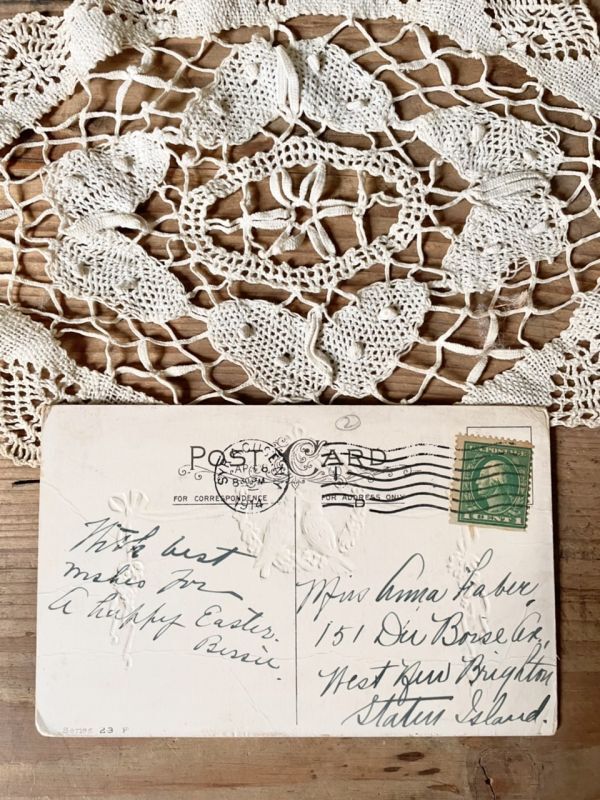 2
POST CARD
FOR CORRESPONDENCE
FOR ADDRESS ONLY
APR 6
1914
U.S. POSTAGE
1 CENT 1
With best
wishes for
A happy Easter.
Bessie.
Miss Anna Faber,
151 Du Boise Av,
West New Brighton
Staten Island.
Series 23 F